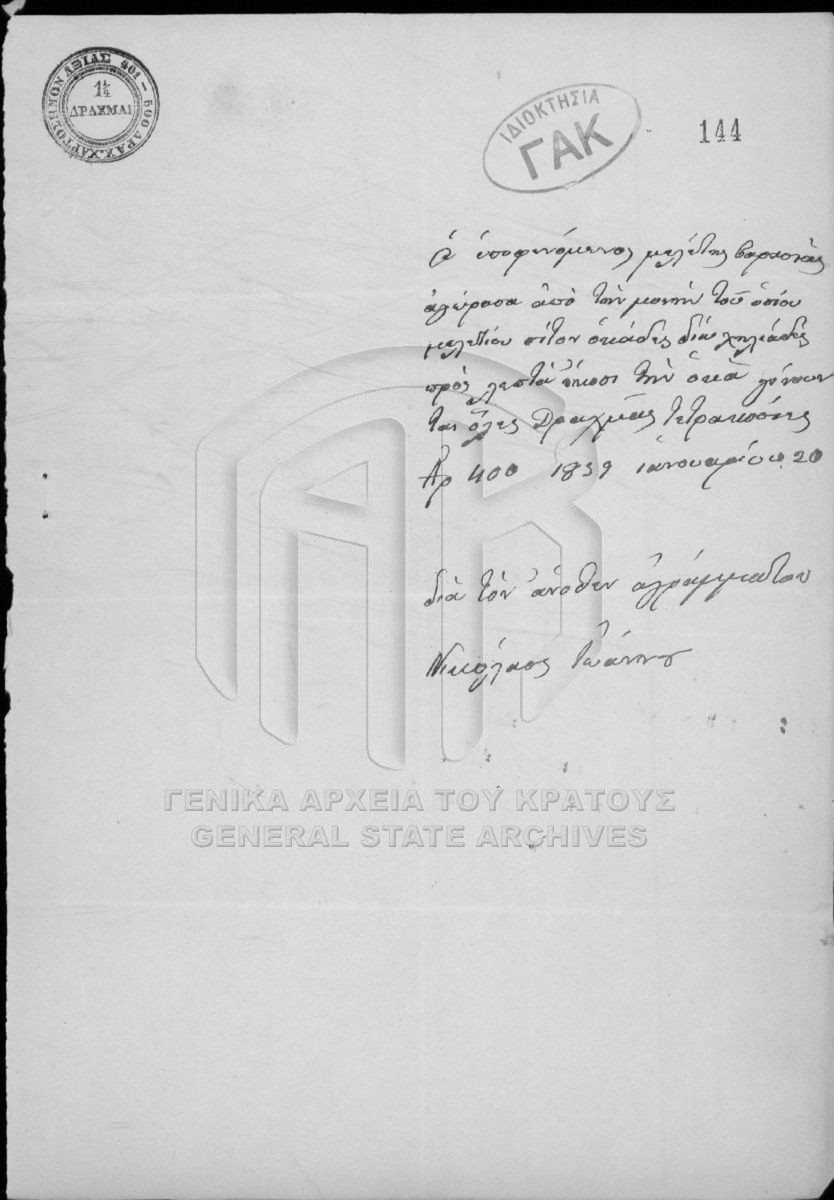 ΧΑΡΤΟΣΗΜΟΝ ΑΞΙΑΣ 401 — 500 ΔΡΑΧ.
1¼
ΔΡΑΧΜΑΙ
ΙΔΙΟΚΤΗΣΙΑ
ΓΑΚ
144
ὁ ὑποφενόμενος μελέτης
ἀγόρασα ἀπὸ τὴν μονὴν τοῦ ὁσίου
μελετίου σίτον ὀκάδες διὰ χηλιάδες
πρὸς λεπτὰ ἤκοσι τὴν ὀκὰ γίνουν
ται ὅλες Δραχμὰς τετρακοσίες
Δρ 400 1839 ἰανουαρίου 20
διὰ τὸν ἄνοθεν ἀγράμματον
Νικόλαος Ἰωάννου
ΓΕΝΙΚΑ ΑΡΧΕΙΑ ΤΟΥ ΚΡΑΤΟΥΣ
GENERAL STATE ARCHIVES